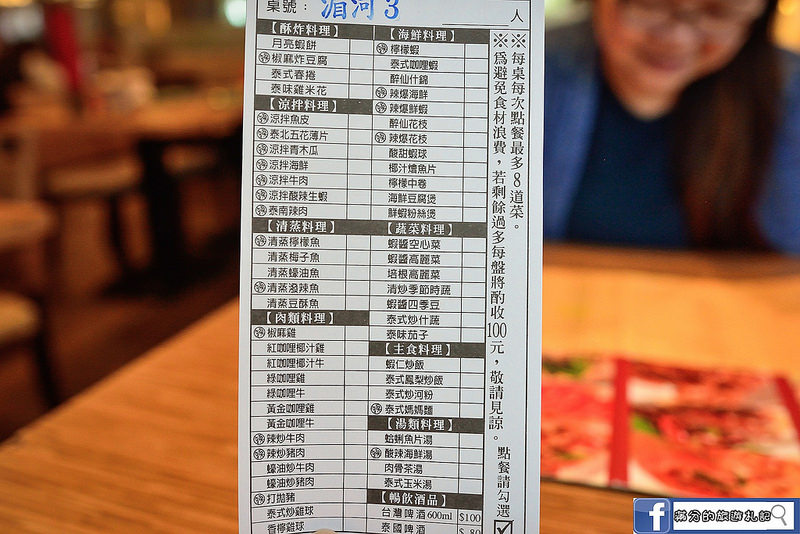 桌號： 湄河3 人
【酥炸料理】
月亮蝦餅
椒麻炸豆腐
泰式春捲
泰味雞米花
【涼拌料理】
涼拌魚皮
泰北五花薄片
涼拌青木瓜
涼拌海鮮
涼拌牛肉
涼拌酸辣生蝦
泰南辣肉
【清蒸料理】
清蒸檸檬魚
清蒸梅子魚
清蒸蠔油魚
清蒸潑辣魚
清蒸豆酥魚
【肉類料理】
椒麻雞
紅咖哩椰汁雞
紅咖哩椰汁牛
綠咖哩雞
綠咖哩牛
黃金咖哩雞
黃金咖哩牛
辣炒牛肉
辣炒豬肉
蠔油炒牛肉
蠔油炒豬肉
打拋豬
泰式炒雞球
香檸雞球
【海鮮料理】
檸檬蝦
泰式咖哩蝦
醉仙什錦
辣爆海鮮
辣爆鮮蝦
醉仙花枝
辣爆花枝
酸甜蝦球
椰汁燴魚片
檸檬中卷
海鮮豆腐煲
鮮蝦粉絲煲
【蔬菜料理】
蝦醬空心菜
蝦醬高麗菜
培根高麗菜
清炒季節時蔬
蝦醬四季豆
泰式炒什蔬
泰味茄子
【主食料理】
蝦仁炒飯
泰式鳳梨炒飯
泰式炒河粉
泰式媽媽麵
【湯類料理】
蛤蜊魚片湯
酸辣海鮮湯
肉骨茶湯
泰式玉米湯
【暢飲酒品】
台灣啤酒600ml $100
泰國啤酒 $ 80
※每桌每次點餐最多8道菜。
※為避免食材浪費，若剩餘過多每盤將酌收100元，敬請見諒。
點餐請勾選☑
f 滿分的旅遊札記